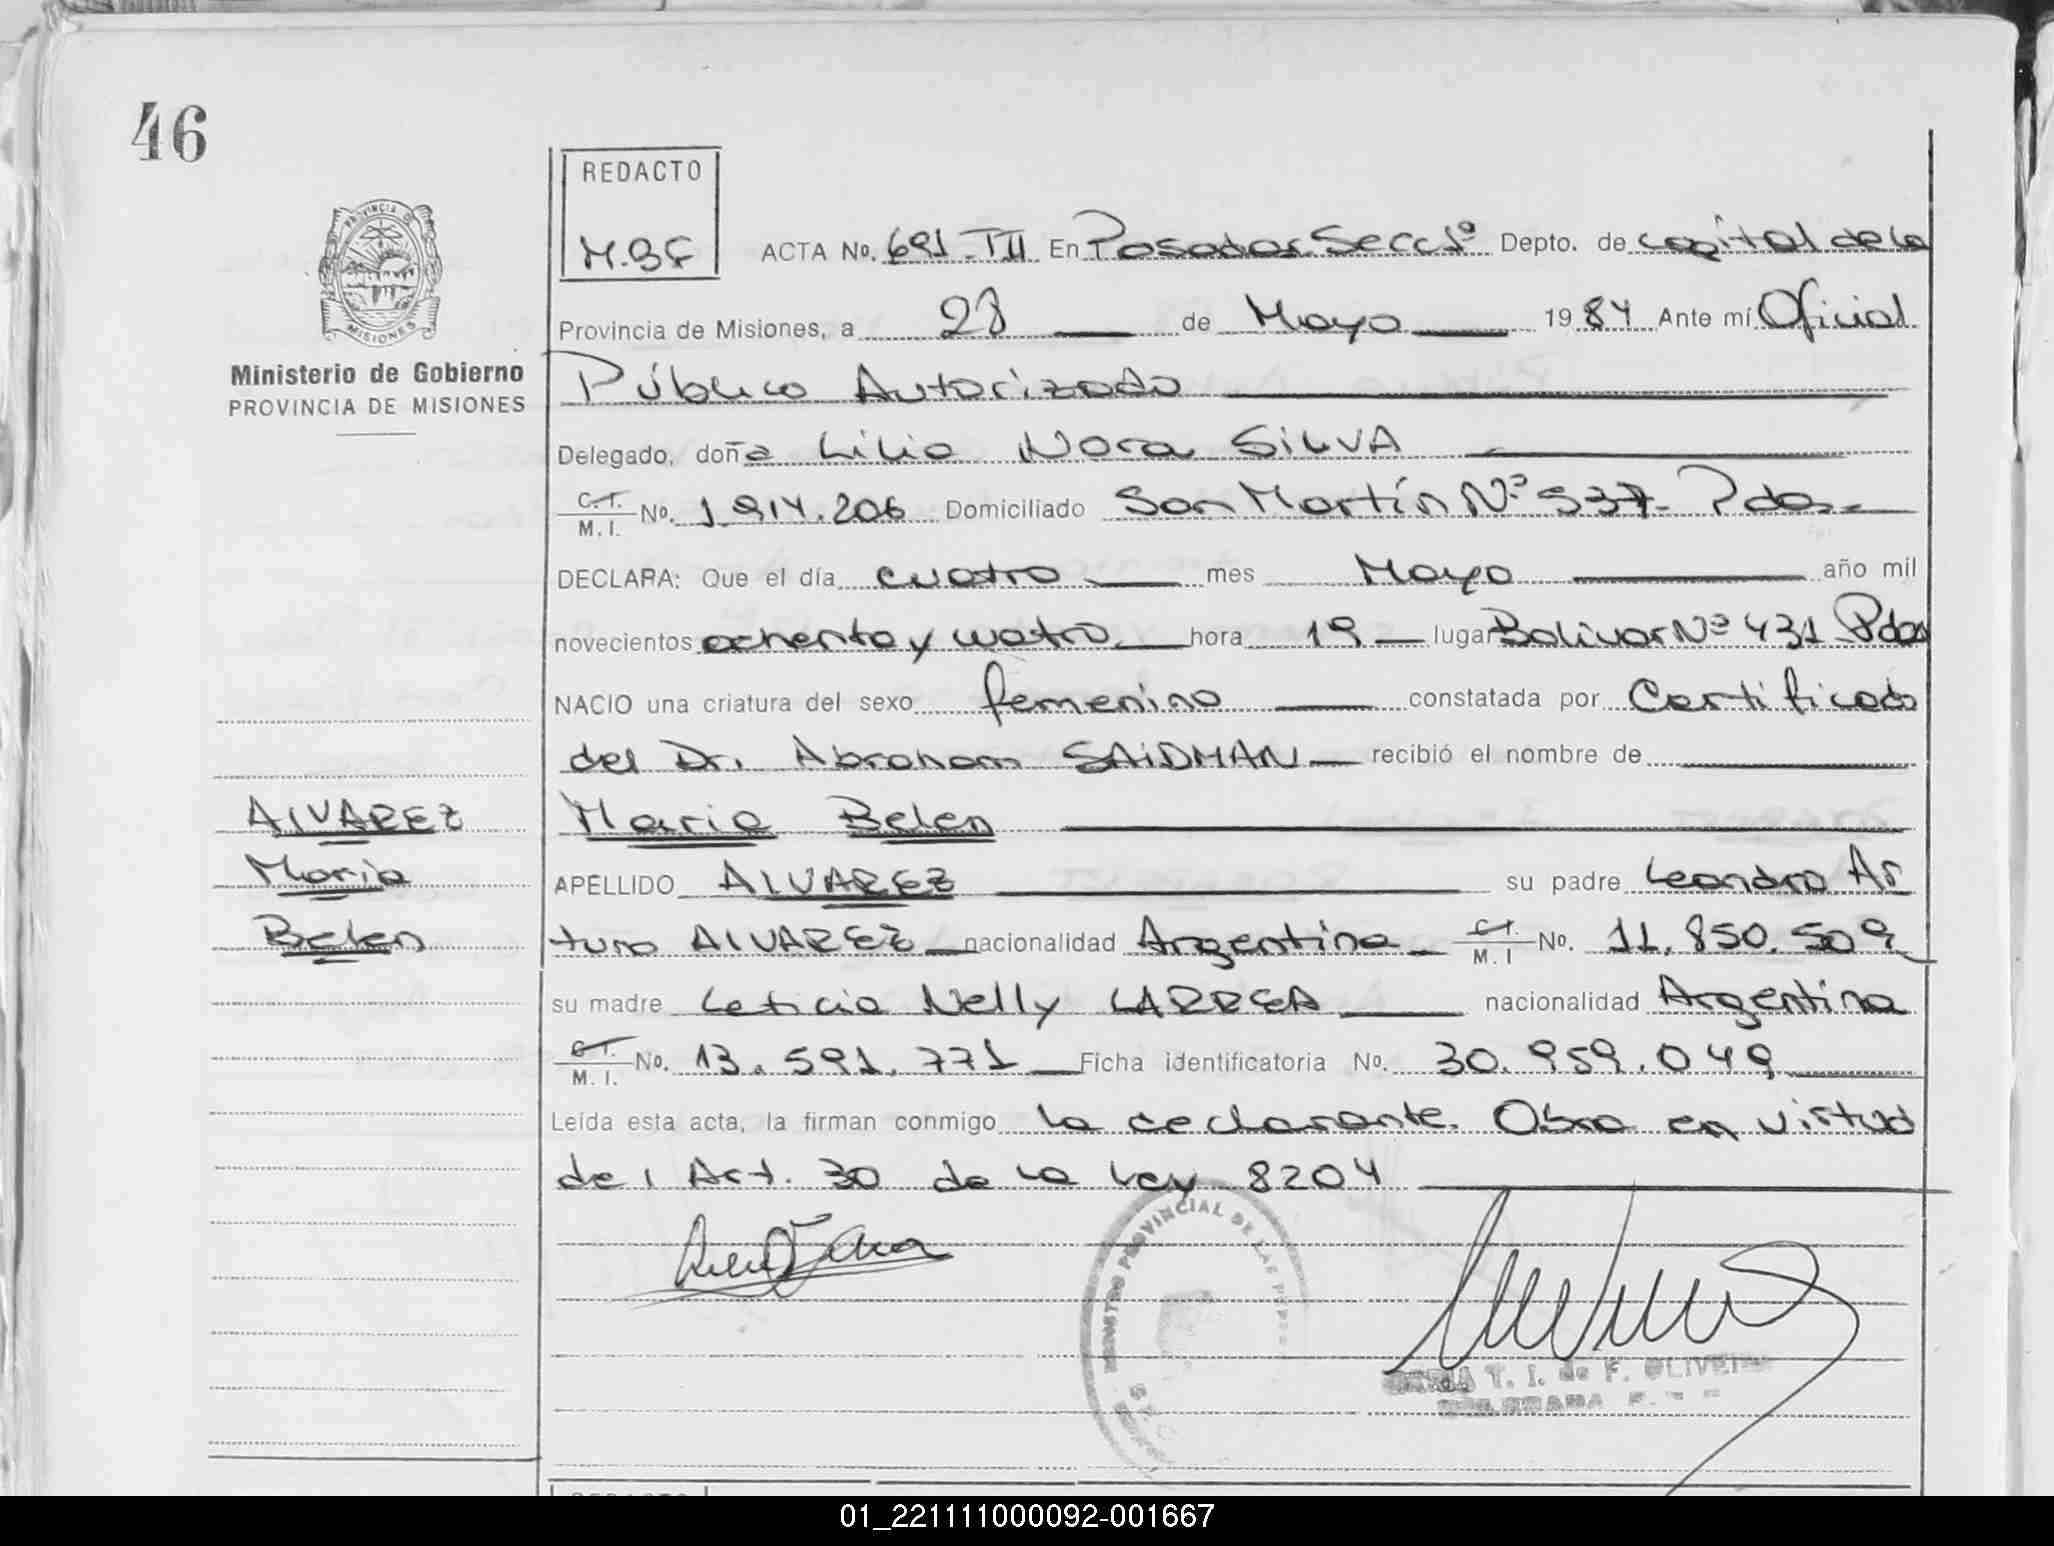 46
REDACTO
M.B.F
ACTA No. 691-TII En Posadas Secc 1ª Depto. de capital de la
PROVINCIA DE
MISIONES
Provincia de Misiones, a 28 de Mayo 1984 Ante mí Oficial
Ministerio de Gobierno
PROVINCIA DE MISIONES
Público Autorizado
Delegado, doña Lilia Nora SILVA
C.I. M.I. No. 1.914.206 Domiciliado San Martín Nº 537- Pdas.-
DECLARA: Que el día cuatro mes Mayo año mil
novecientos ochenta y cuatro hora 19 lugar Bolivar Nº 431 Pdas
NACIO una criatura del sexo femenino constatada por Certificado
del Dr. Abraham SAIDMAN recibió el nombre de
ALVAREZ
Maria
Belen
Maria Belen
APELLIDO ALVAREZ su padre Leandro Ar
turo ALVAREZ nacionalidad Argentina C.I. M.I No. 11.850.509
su madre Leticia Nelly LARREA nacionalidad Argentina
C.I. M.I. No. 13.591.771 Ficha identificatoria No. 30.959.049
Leída esta acta, la firman conmigo la declarante. Obra en virtud
del Art. 30 de la Ley 8204
REGISTRO PROVINCIAL DE LAS
T. I. de F. OLIVEIRA
REDACTO
01_221111000092-001667